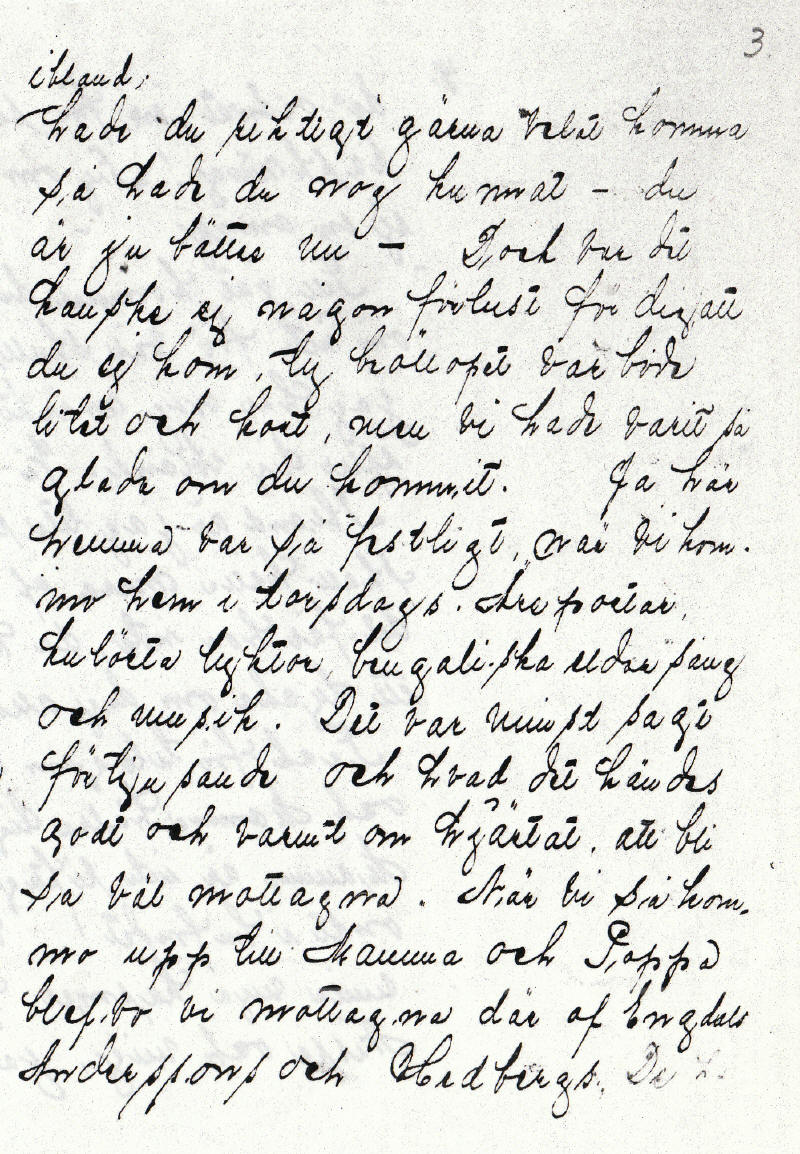 3
ibland,
hade du riktigt gärna velat komma
så hade du nog kunnat – du
är ju bättre nu – Dock var det
kanske ej någon förlust för dig, att
du ej kom, ty bröllopet var både
litet och kort, men vi hade varit så
glada om du kommit. Ja här
hemma var så festligt, när vi kom-
mo hem i torsdags. Äreportar,
kulörta lyktor, bengaliska eldar sång
och musik. Det var minst sagt
förtjusande och hvad det kändes
godt och varmt om hjärtat, att bli
så väl mottagna. När vi så kom-
mo upp till Mamma och Pappa
blefvo vi mottagna där af Engdals
Anderssons och Hedbergs. De